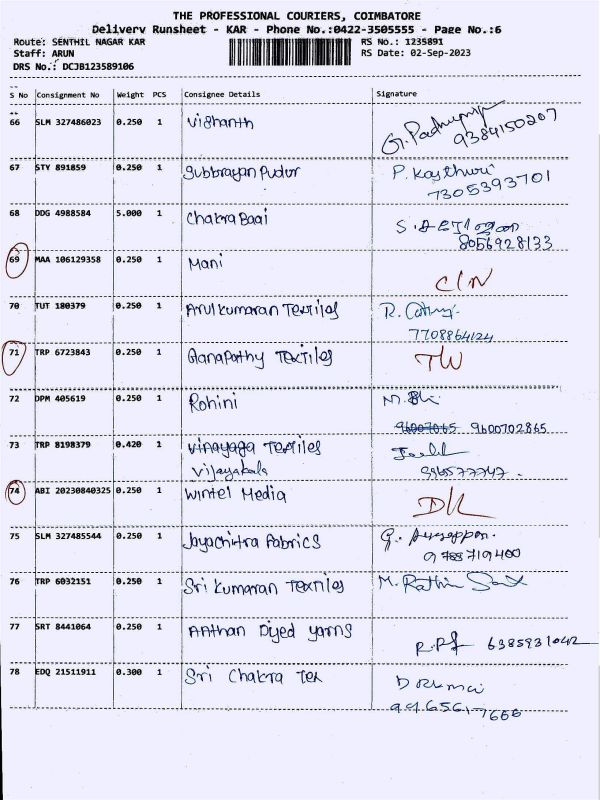 THE PROFESSIONAL COURIERS, COIMBATORE
Delivery Runsheet - KAR - Phone No.:0422-3505555 - Page No.:6
Route: SENTHIL NAGAR KAR RS No.: 1235891
Staff: ARUN RS Date: 02-Sep-2023
DRS No.: DCJB123589106
S No Consignment No Weight PCS Consignee Details Signature
66 SLM 327486023 0.250 1 Vishanth
9384150207
67 STY 891859 0.250 1 Subbrayan Pudur P. Kasthuri
7305393701
68 DDG 4988584 5.000 1 Chakra Baai
8056928133
69 MAA 106129358 0.250 1 Mani
C/N
70 TUT 180379 0.250 1 Arul kumaran Textiles R.
7708864124
71 TRP 6723843 0.250 1 Ganapathy Textiles TW
72 DPM 405619 0.250 1 Rohini M.
9600702865
73 TRP 8198379 0.420 1 Vinayaga Textiles
Vijayakala
74 ABI 20230840325 0.250 1 Wintel Media DK
75 SLM 327485544 0.250 1 Jayachitra Fabrics G.
9788719400
76 TRP 6032151 0.250 1 Sri Kumaran Textiles M. Rathin
77 SRT 8441064 0.250 1 AAthan Dyed yarns
6385931042
78 EDQ 21511911 0.300 1 Sri Chakra Tex